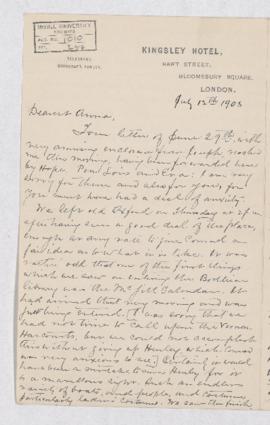 McGILL UNIVERSITY
ARCHIVES
ACC. NO. 1010
REF.
KINGSLEY HOTEL,
HART STREET,
BLOOMSBURY SQUARE,
LONDON.
July 12th 1903
Dearest Anna,
Your letter of June 29th, with
very amusing enclosure from reached
me this morning, having been forwarded here
by Hope. Poor Lois and Eva! I am very
sorry for them and also for you, for
you must have had a deal of anxiety.
We left old Oxford on Thursday at
after having seen a good deal of the place,
enough at any rate to give Conrad an
fair idea as to what it is like. It was
rather odd that one of the first things
which we saw on entering the Bodleian
library was the McGill Calendar. It
had arrived that very morning and was
just being entered. I was sorry that we
had not time to call upon the Vernon
Harcourts, but we could not accomplish
this without giving up Henley which
was very anxious to see. Certainly it would
have been a mistake to miss Henley for it
is a marvellous sight. Such an endless
variety of boats, and people, and costumes,
particularly ladies' costumes. We saw the finish